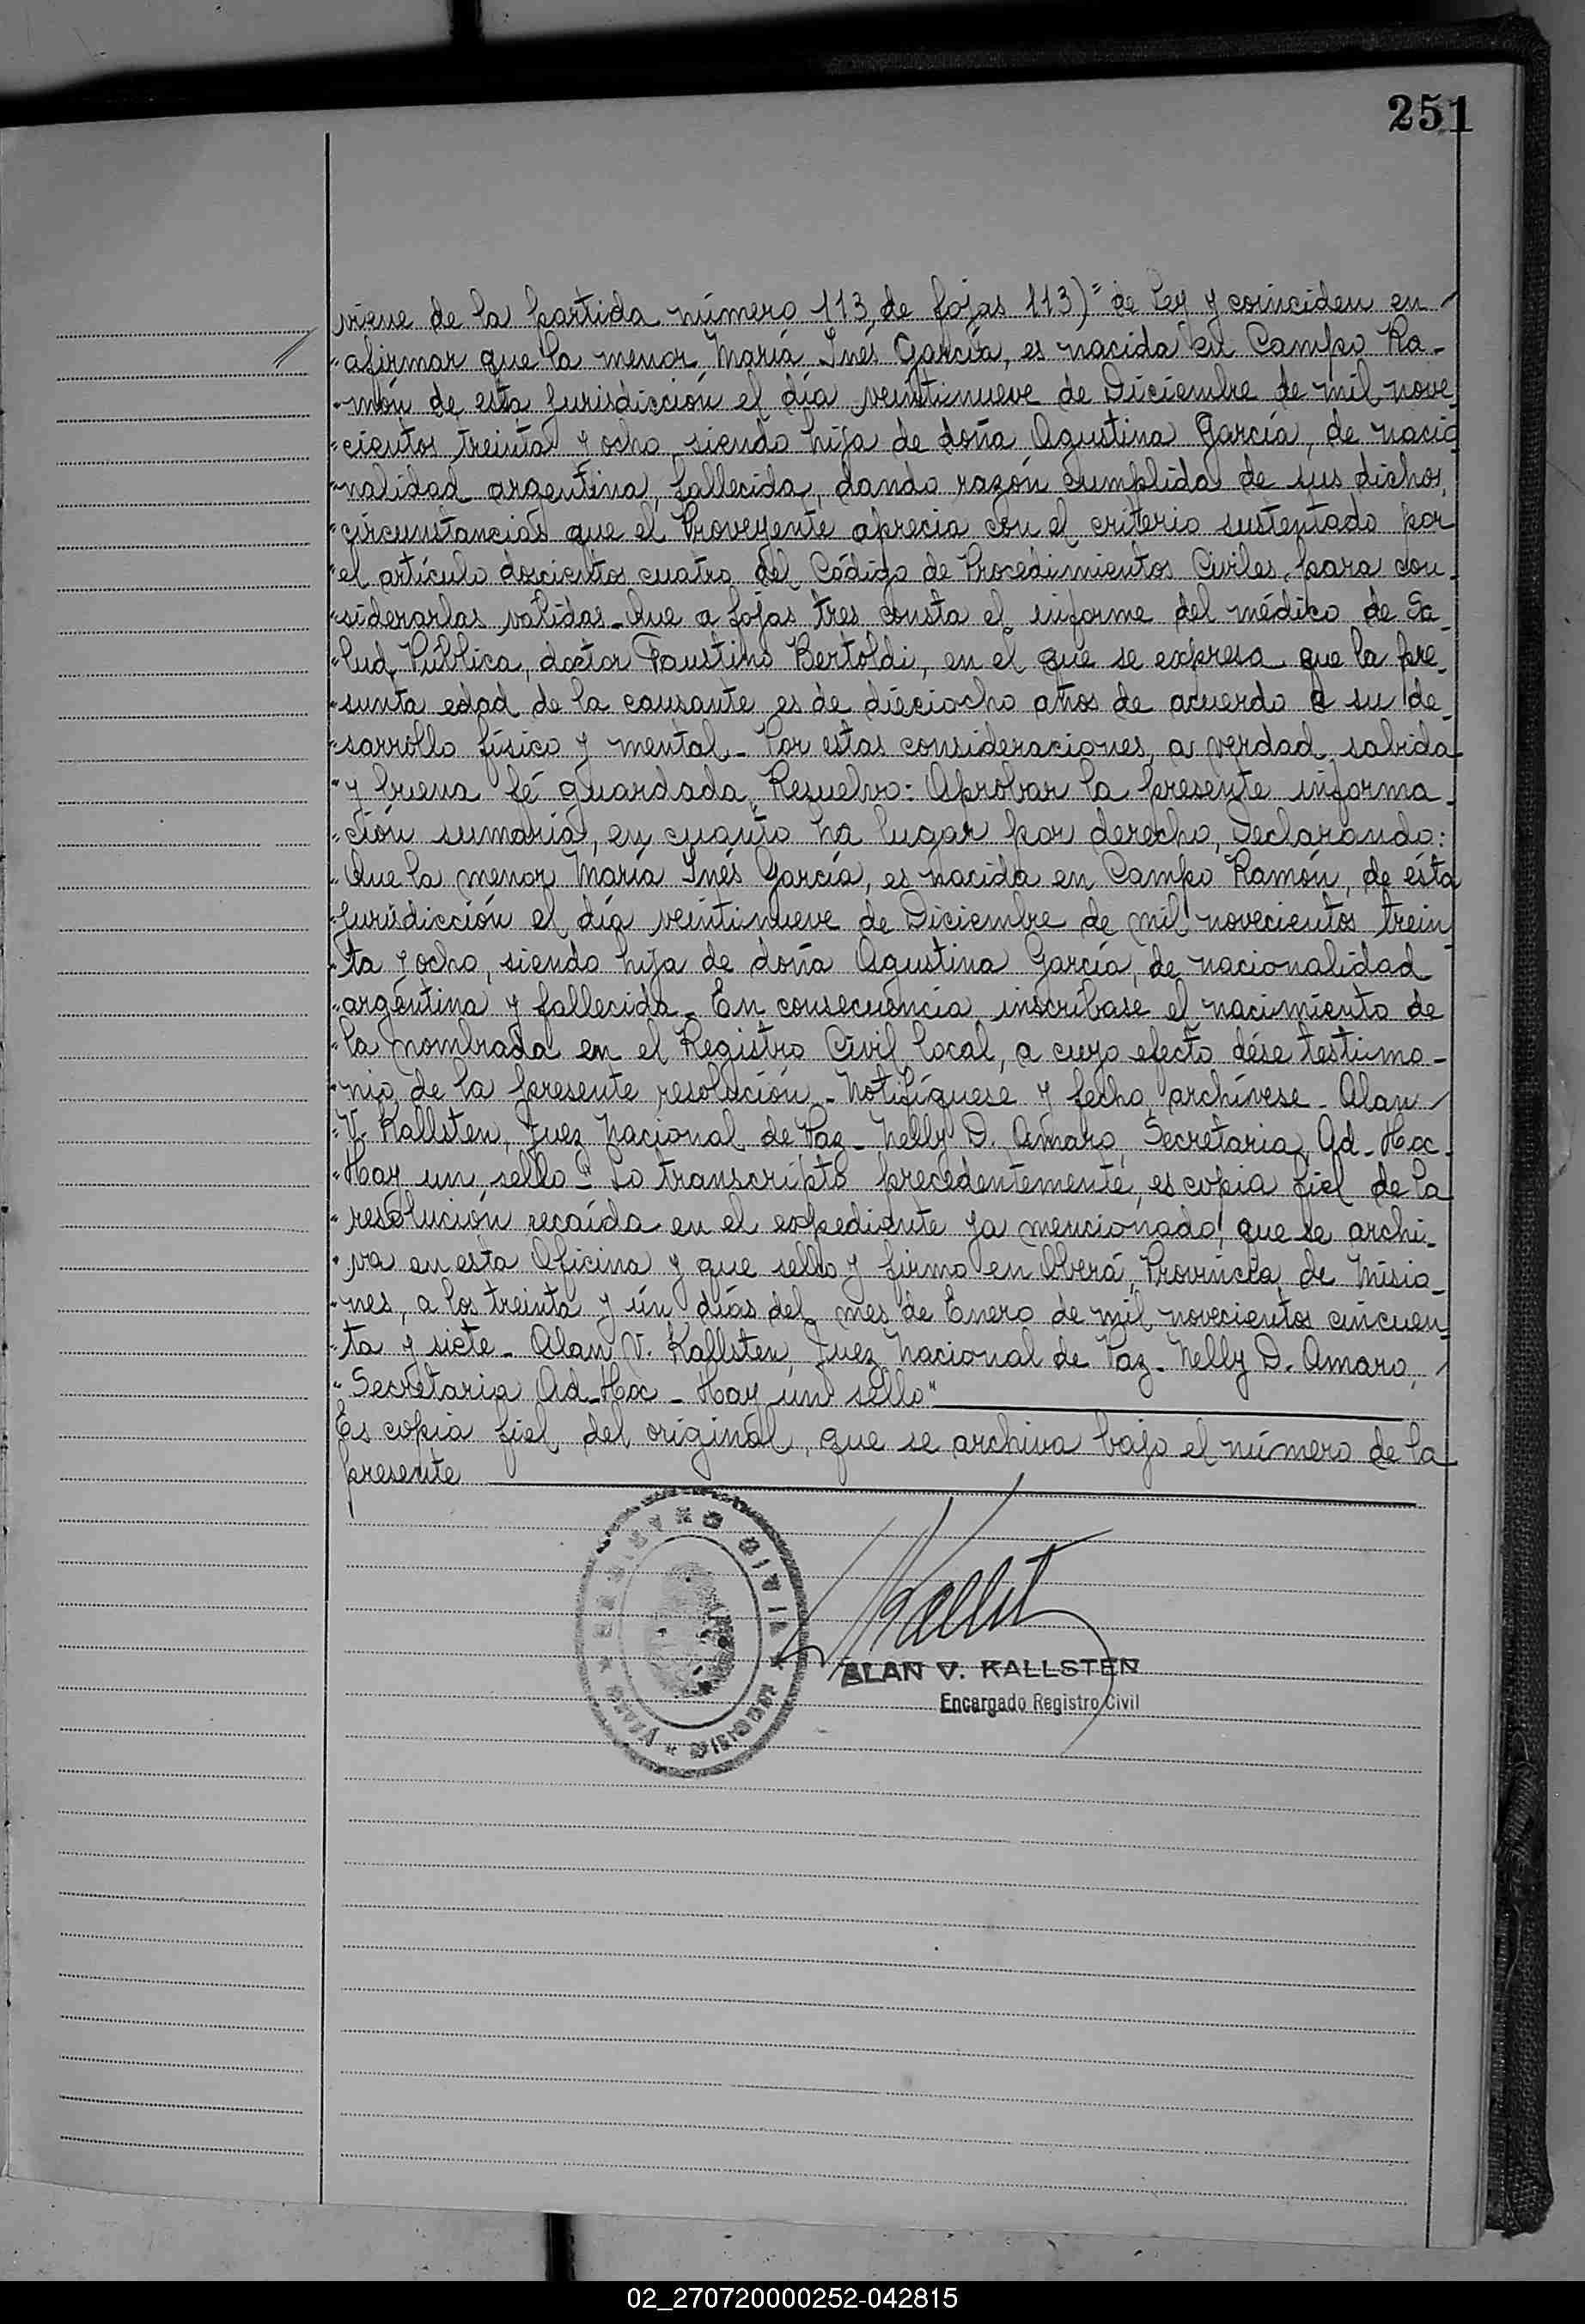 251
viene de la partida número 113, de fojas 113)" de Ley y coinciden en
"afirmar que la menor María Inés García, es nacida en Campo Ra-
"món de esta Jurisdicción el día veintinueve de Diciembre de mil nove
"cientos treinta y ocho, siendo hija de doña Agustina García, de nacio
"nalidad argentina, fallecida, dando razón cumplida de sus dichos,
"circunstancias que el Proveyente aprecia con el criterio sustentado por
"el artículo doscientos cuatro del Código de Procedimientos Civiles, para con-
"siderarlas validas_Que a fojas tres consta el informe del médico de Sa-
"lud Pública, doctor Faustino Bertoldi, en el que se expresa que la pre-
"sunta edad de la causante es de dieciocho años de acuerdo a su de-
"sarrollo físico y mental_Por estas consideraciones, a verdad sabida
"y buena fé guardada, Resuelvo: Aprobar la presente informa-
"ción sumaria, en cuanto ha lugar por derecho, Declarando:
"Que la menor María Inés García, es nacida en Campo Ramón, de ésta
"Jurisdicción el día veintinueve de Diciembre de mil novecientos trein
"ta y ocho, siendo hija de doña Agustina García, de nacionalidad
"argentina y fallecida_En consecuencia inscríbase el nacimiento de
"la nombrada en el Registro Civil local, a cuyo efecto dése testimo-
"nio de la presente resolución_Notifíquese y fecho archívese_Alan
"V. Kallsten, Juez Nacional de Paz_Nelly D. Amaro, Secretaria Ad-Hoc_
"Hay un sello_" Lo transcripto precedentemente, es copia fiel de la
"resolución recaída en el expediente ya mencionado, que se archi-
"va en esta Oficina y que sello y firmo en Oberá, Provincia de Misio-
"nes, a los treinta y ún días del mes de Enero de mil novecientos cincuen
"ta y siete_Alan V. Kallsten, Juez Nacional de Paz_Nelly D. Amaro,
"Secretaria Ad-Hoc_Hay ún sello"
Es copia fiel del original, que se archiva bajo el número de la
presente
ALAN V. KALLSTEN
Encargado Registro Civil
02_270720000252-042815